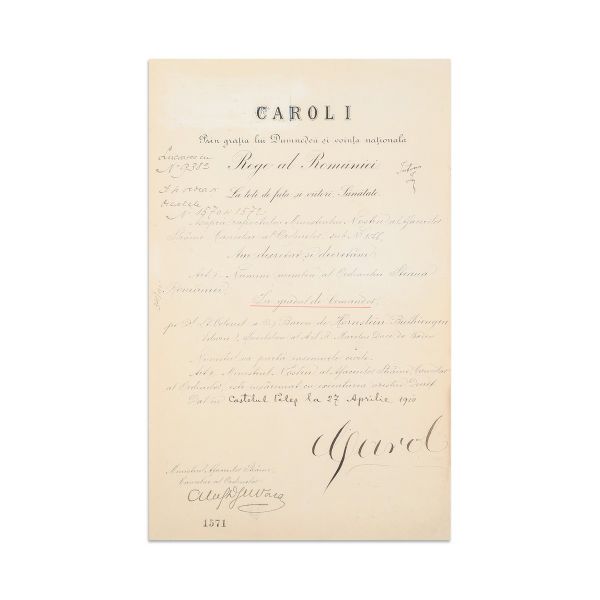 CAROL I
Prin grația lui Dumnedeu și voința națională
Rege al Romaniei
La toti de față și viitori, Sănătate.
No 2382
No 1570 și 1572
Asupra raportului Ministrului Nostru al Afacerilor
Străine, Cancelar al Ordinelor, sub No
Am decretat și decretăm:
Art. I Numim membru al Ordinului Steaua
României
La gradul de Comandor
pe D-l Lt. Colonel Baron de Hornstein
Duce de Baden
Numitul va purta insemnele civile.
Art. II Ministrul Nostru al Afacerilor Străine, Cancelar
al Ordinelor, este însărcinat cu executarea acestui Decret
Dat în Castelul Peleș la 27 Aprilie 1910
Carol
Ministrul Afacerilor Străine
Cancelar al Ordinelor
1571